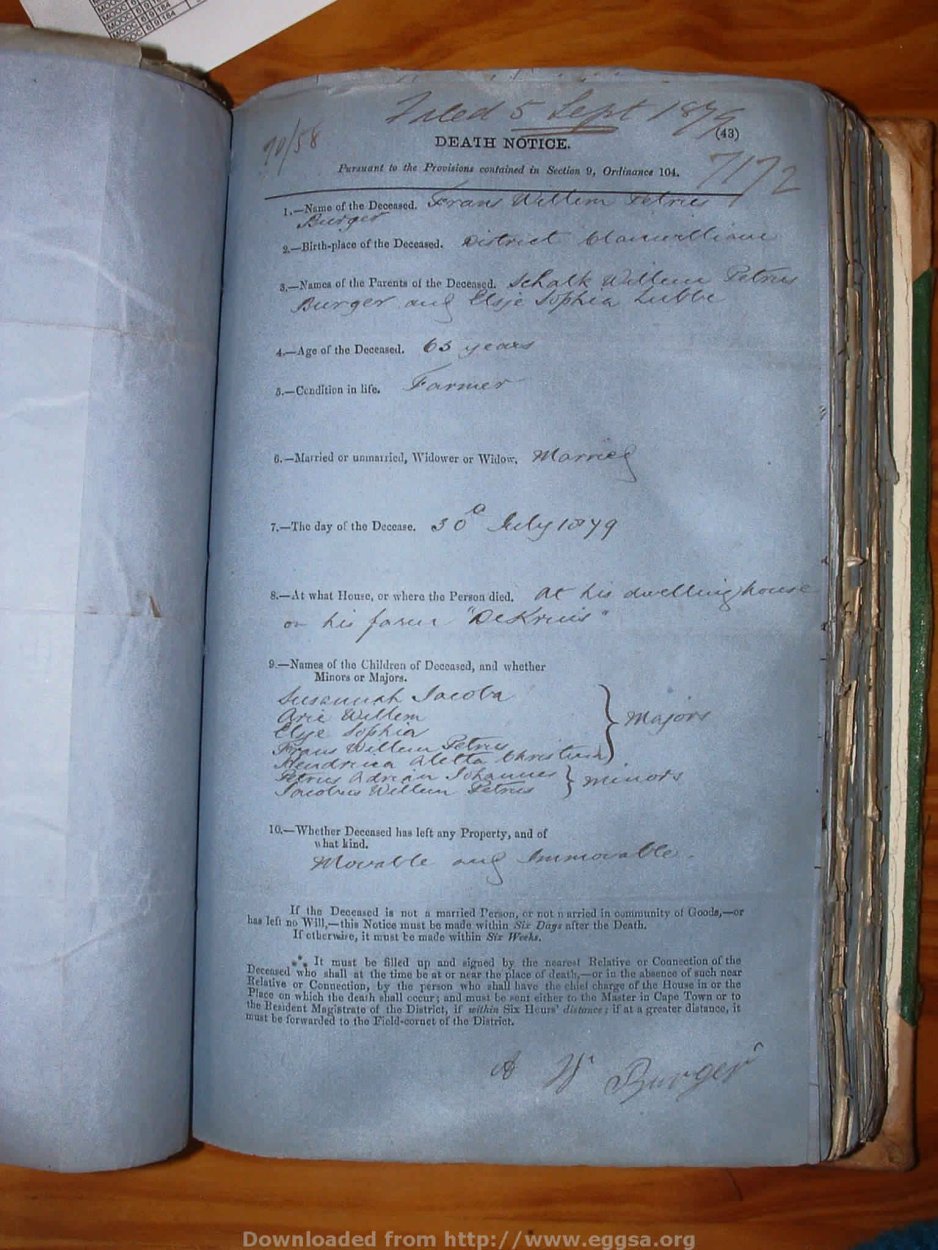 MOOC 6/9/184
MOOC 6/9/184
Filed 5 Sept 1879
70/58
(43)
DEATH NOTICE.
Pursuant to the Provisions contained in Section 9, Ordinance 104.
7172
1.—Name of the Deceased. Frans Willem Petrus
Burger
2.—Birth-place of the Deceased. District Clanwilliam
3.—Names of the Parents of the Deceased. Schalk Willem Petrus
Burger and Elsje Sophia Lubbe
4.—Age of the Deceased. 63 years
5.—Condition in life. Farmer
6.—Married or unmarried, Widower or Widow. Married
7.—The day of the Decease. 30 July 1879
8.—At what House, or where the Person died. At his dwelling house
on his farm "De Kruis"
9.—Names of the Children of Deceased, and whether
Minors or Majors.
Susannah Jacoba
Arie Willem
Elsje Sophia
Majors
Frans Willem Petrus
Hendrica Aletta Christina
Petrus Adrian Johannes
minors
Jacobus Willem Petrus
10.—Whether Deceased has left any Property, and of
what kind.
Movable and Immovable.
If the Deceased is not a married Person, or not married in community of Goods,—or
has left no Will,—this Notice must be made within Six Days after the Death.
If otherwise, it must be made within Six Weeks.
*** It must be filled up and signed by the nearest Relative or Connection of the
Deceased who shall at the time be at or near the place of death,—or in the absence of such near
Relative or Connection, by the person who shall have the chief charge of the House in or the
Place on which the death shall occur; and must be sent either to the Master in Cape Town or to
the Resident Magistrate of the District, if within Six Hours' distance; if at a greater distance, it
must be forwarded to the Field-cornet of the District.
A W Burger
Downloaded from http://www.eggsa.org